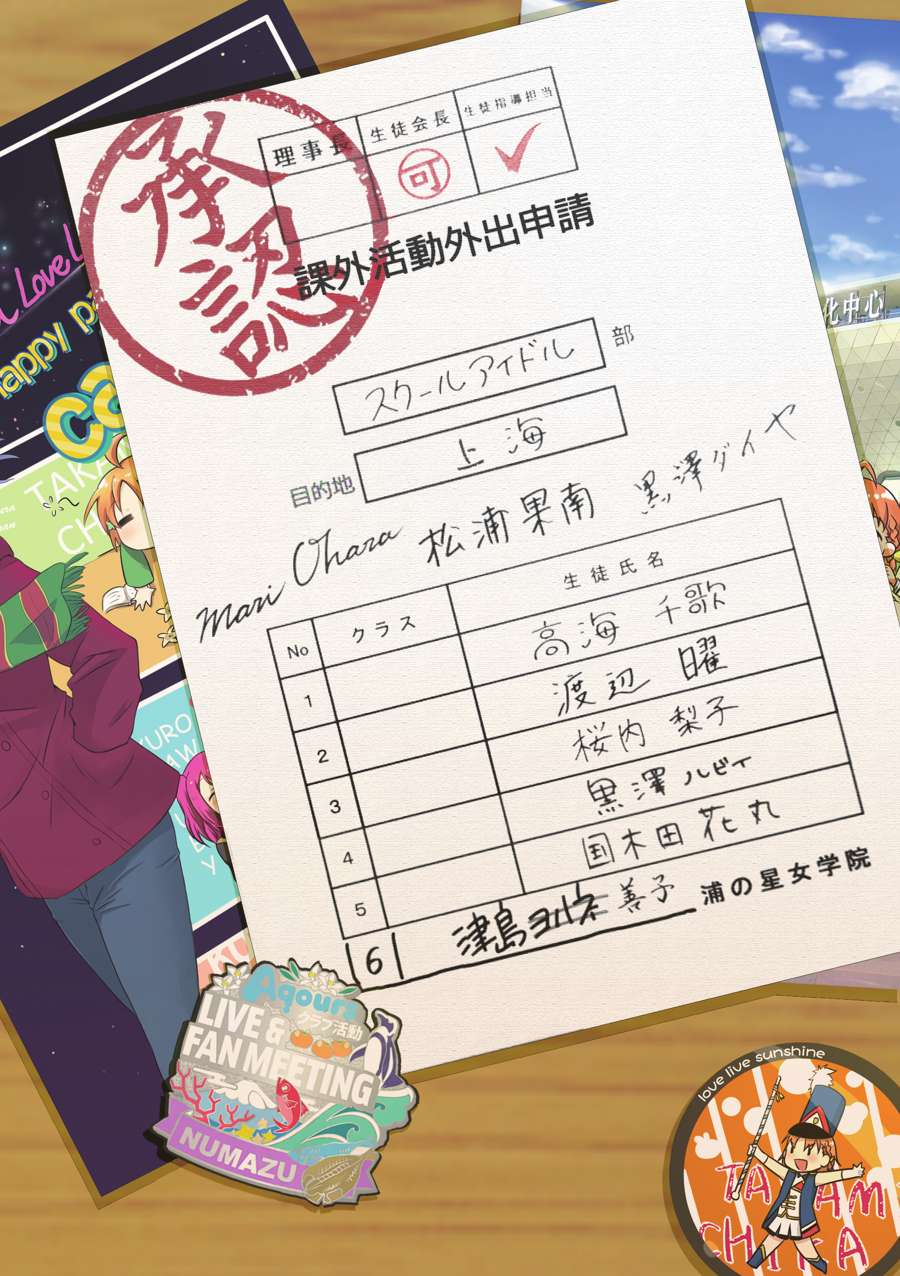 承認
理事長 生徒会長 生徒指導担当
可
課外活動外出申請
スクールアイドル 部
目的地 上海
Mari Ohara 松浦果南 黒澤ダイヤ
No クラス 生徒氏名
1 高海 千歌
2 渡辺 曜
3 桜内 梨子
4 黒澤 ルビィ
5 国木田 花丸
6 津島 ヨハネ 善子
浦の星女学院
Love
happy pa
ca
TAKA
CH
KURO
AW
Y
KU
化中心
Aqours
クラブ活動
LIVE &
FAN MEETING
NUMAZU
love live sunshine
TA AM
CHIKA